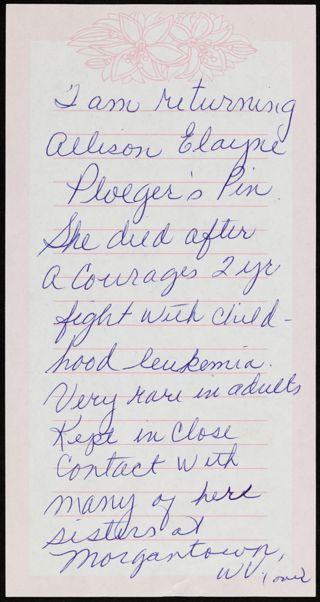 I am returning
Allison Elayne
Ploeger's Pin
She died after
a Courages 2 yr
fight with child-
hood leukemia.
Very rare in adults
Kept in Close
Contact with
many of her
sisters at
Morgantown,
WV. over